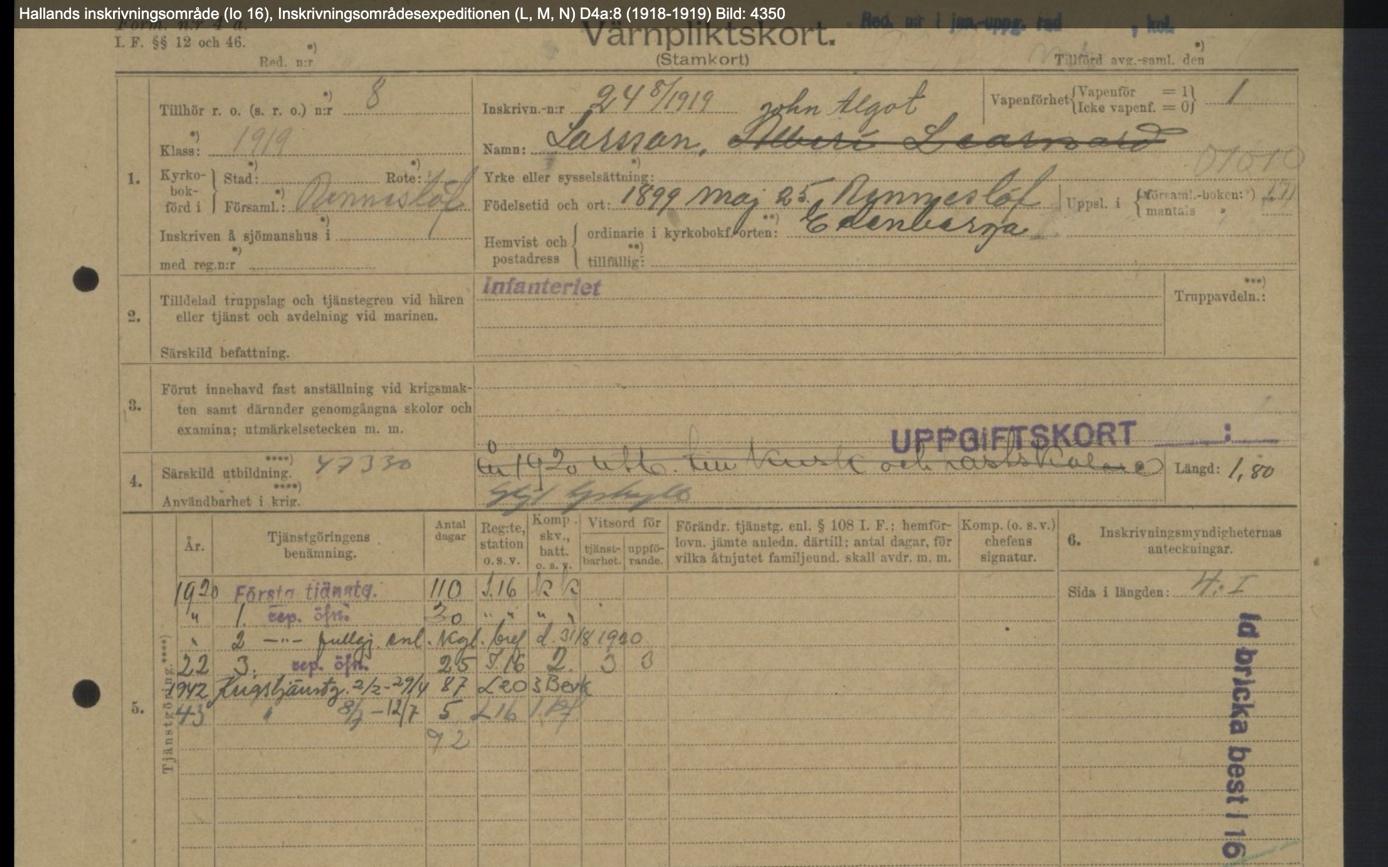 Hallands inskrivningsområde (Io 16), Inskrivningsområdesexpeditionen (L, M, N) D4a:8 (1918-1919) Bild: 4350
I. F. §§ 12 och 46.
Red. n:r *)
Värnpliktskort.
(Stamkort)
Tillförd avg.-saml. den *)
1.
Tillhör r. o. (s. r. o.) n:r *) 8
Klass: *) 1919
Kyrkobokförd i
Stad: *) Rote: *)
Församl.: *) Rennislöf
Inskriven å sjömanshus i *)
med reg.n:r *)
Inskrivn.-n:r 24 8/1919 John Algot
Vapenförhet *) Vapenför = 1
Icke vapenf. = 0
1
Namn: Larsson,
Yrke eller sysselsättning: *)
Födelsetid och ort: 1899 Maj 25. Rennislöf
Uppsl. i församl.-boken: *)
mantals "
Hemvist och postadress
ordinarie i kyrkobokf.-orten: **) Edenberga
tillfällig: **)
2.
Tilldelad truppslag och tjänstegren vid hären
eller tjänst och avdelning vid marinen.
Särskild befattning.
Infanteriet
Truppavdeln.: ***)
3.
Förut innehavd fast anställning vid krigsmak-
ten samt därunder genomgångna skolor och
examina; utmärkelsetecken m. m.
UPPGIFTSKORT :
4.
Särskild utbildning. ****) 47330
Användbarhet i krig. ****)
Längd: 1,80
5.
Tjänstgöring. ****)
År.
Tjänstgöringens
benämning.
Antal
dagar
Reg:te,
station
o. s. v.
Komp.
skv.,
batt.
o. s. v.
Vitsord för
tjänst-
barhet.
uppfö-
rande.
Förändr. tjänstg. enl. § 108 I. F.; hemför-
lovn. jämte anledn. därtill; antal dagar, för
vilka åtnjutet familjeund. skall avdr. m. m.
Komp. (o. s. v.)
chefens
signatur.
6.
Inskrivningsmyndigheternas
anteckningar.
Sida i längden: 4. I
1920 Första tjänstg. 110 I.16 k k
" 1. rep. öfn. 30 " " "
" 2 —"— fullgj. enl. Kgl. bref d. 31/8 1920
22 3. rep. öfn. 25 I.16 2. 3 3
1942 Krigstjänstg. 2/2-29/4 87 I 20 3 Bevk
43 " 8/7 -12/7 5 I 16
92
Id bricka best i 16